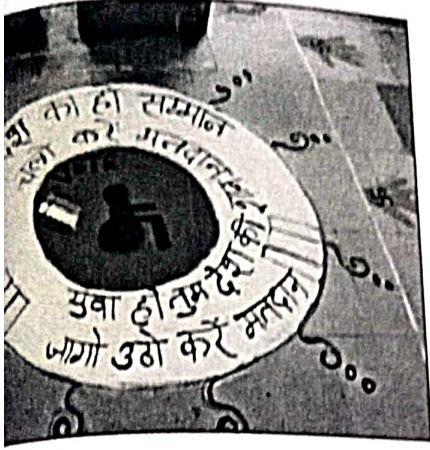 देश का हो सम्मान
चलो करें मतदान
युवा हो तुम देश की
जागो उठो करें मतदान